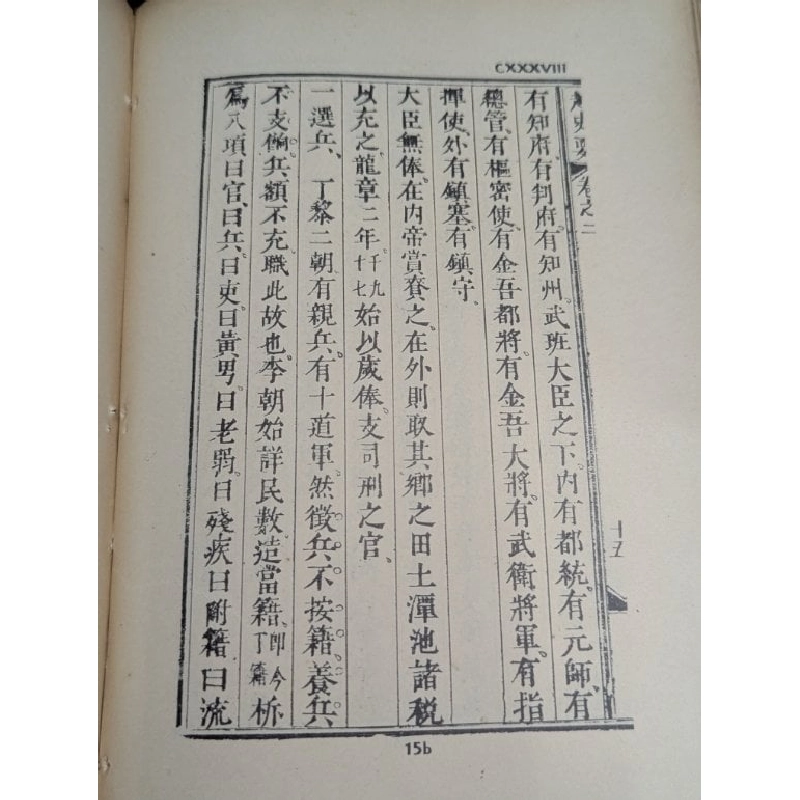 CXXXVIII
越史要 卷之二
十五
有知府、有判府、有知州。武班大臣之下、内有都統。有元帥、有
總管、有樞密使、有金吾都將。有金吾大將。有武衛將軍。有指
揮使、外有鎮塞。有鎮守、
大臣無俸。在内帝賞賚之。在外則取其鄉之田土潭池諸税
以充之。龍章二年。千九十七始以歲俸。支司刑之官、
一選兵、丁黎二朝有親兵。有十道軍。然徵兵。不按籍。養兵。
不支餉。兵額不充。職此故也。李朝始詳民數。造當籍。即今丁籍析
爲八項曰官、曰兵。曰吏、曰黃男。曰老弱。曰殘疾曰附籍曰流
15b